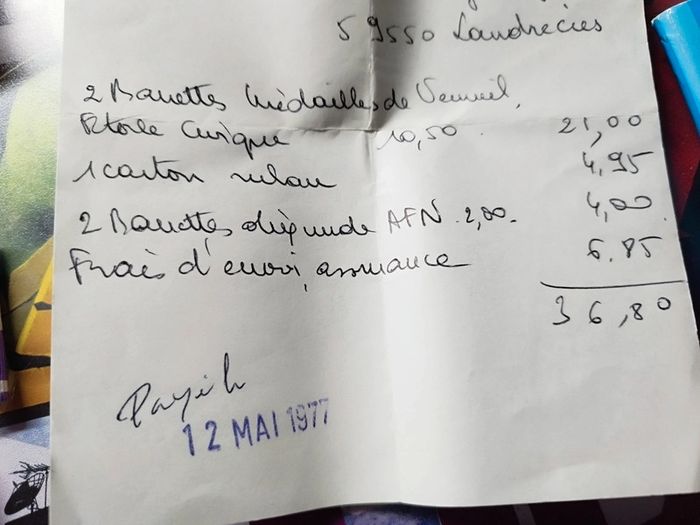 59550 Landrecies
2 Barrettes Médailles de Verneil,
Etoile Civique 10,50. 21,00
1 carton ruban 4,95
2 Barrettes agrafe AFN 2,00. 4,00
Frais d'envoi, assurance 6.85
36,80
Payé le
12 MAI 1977